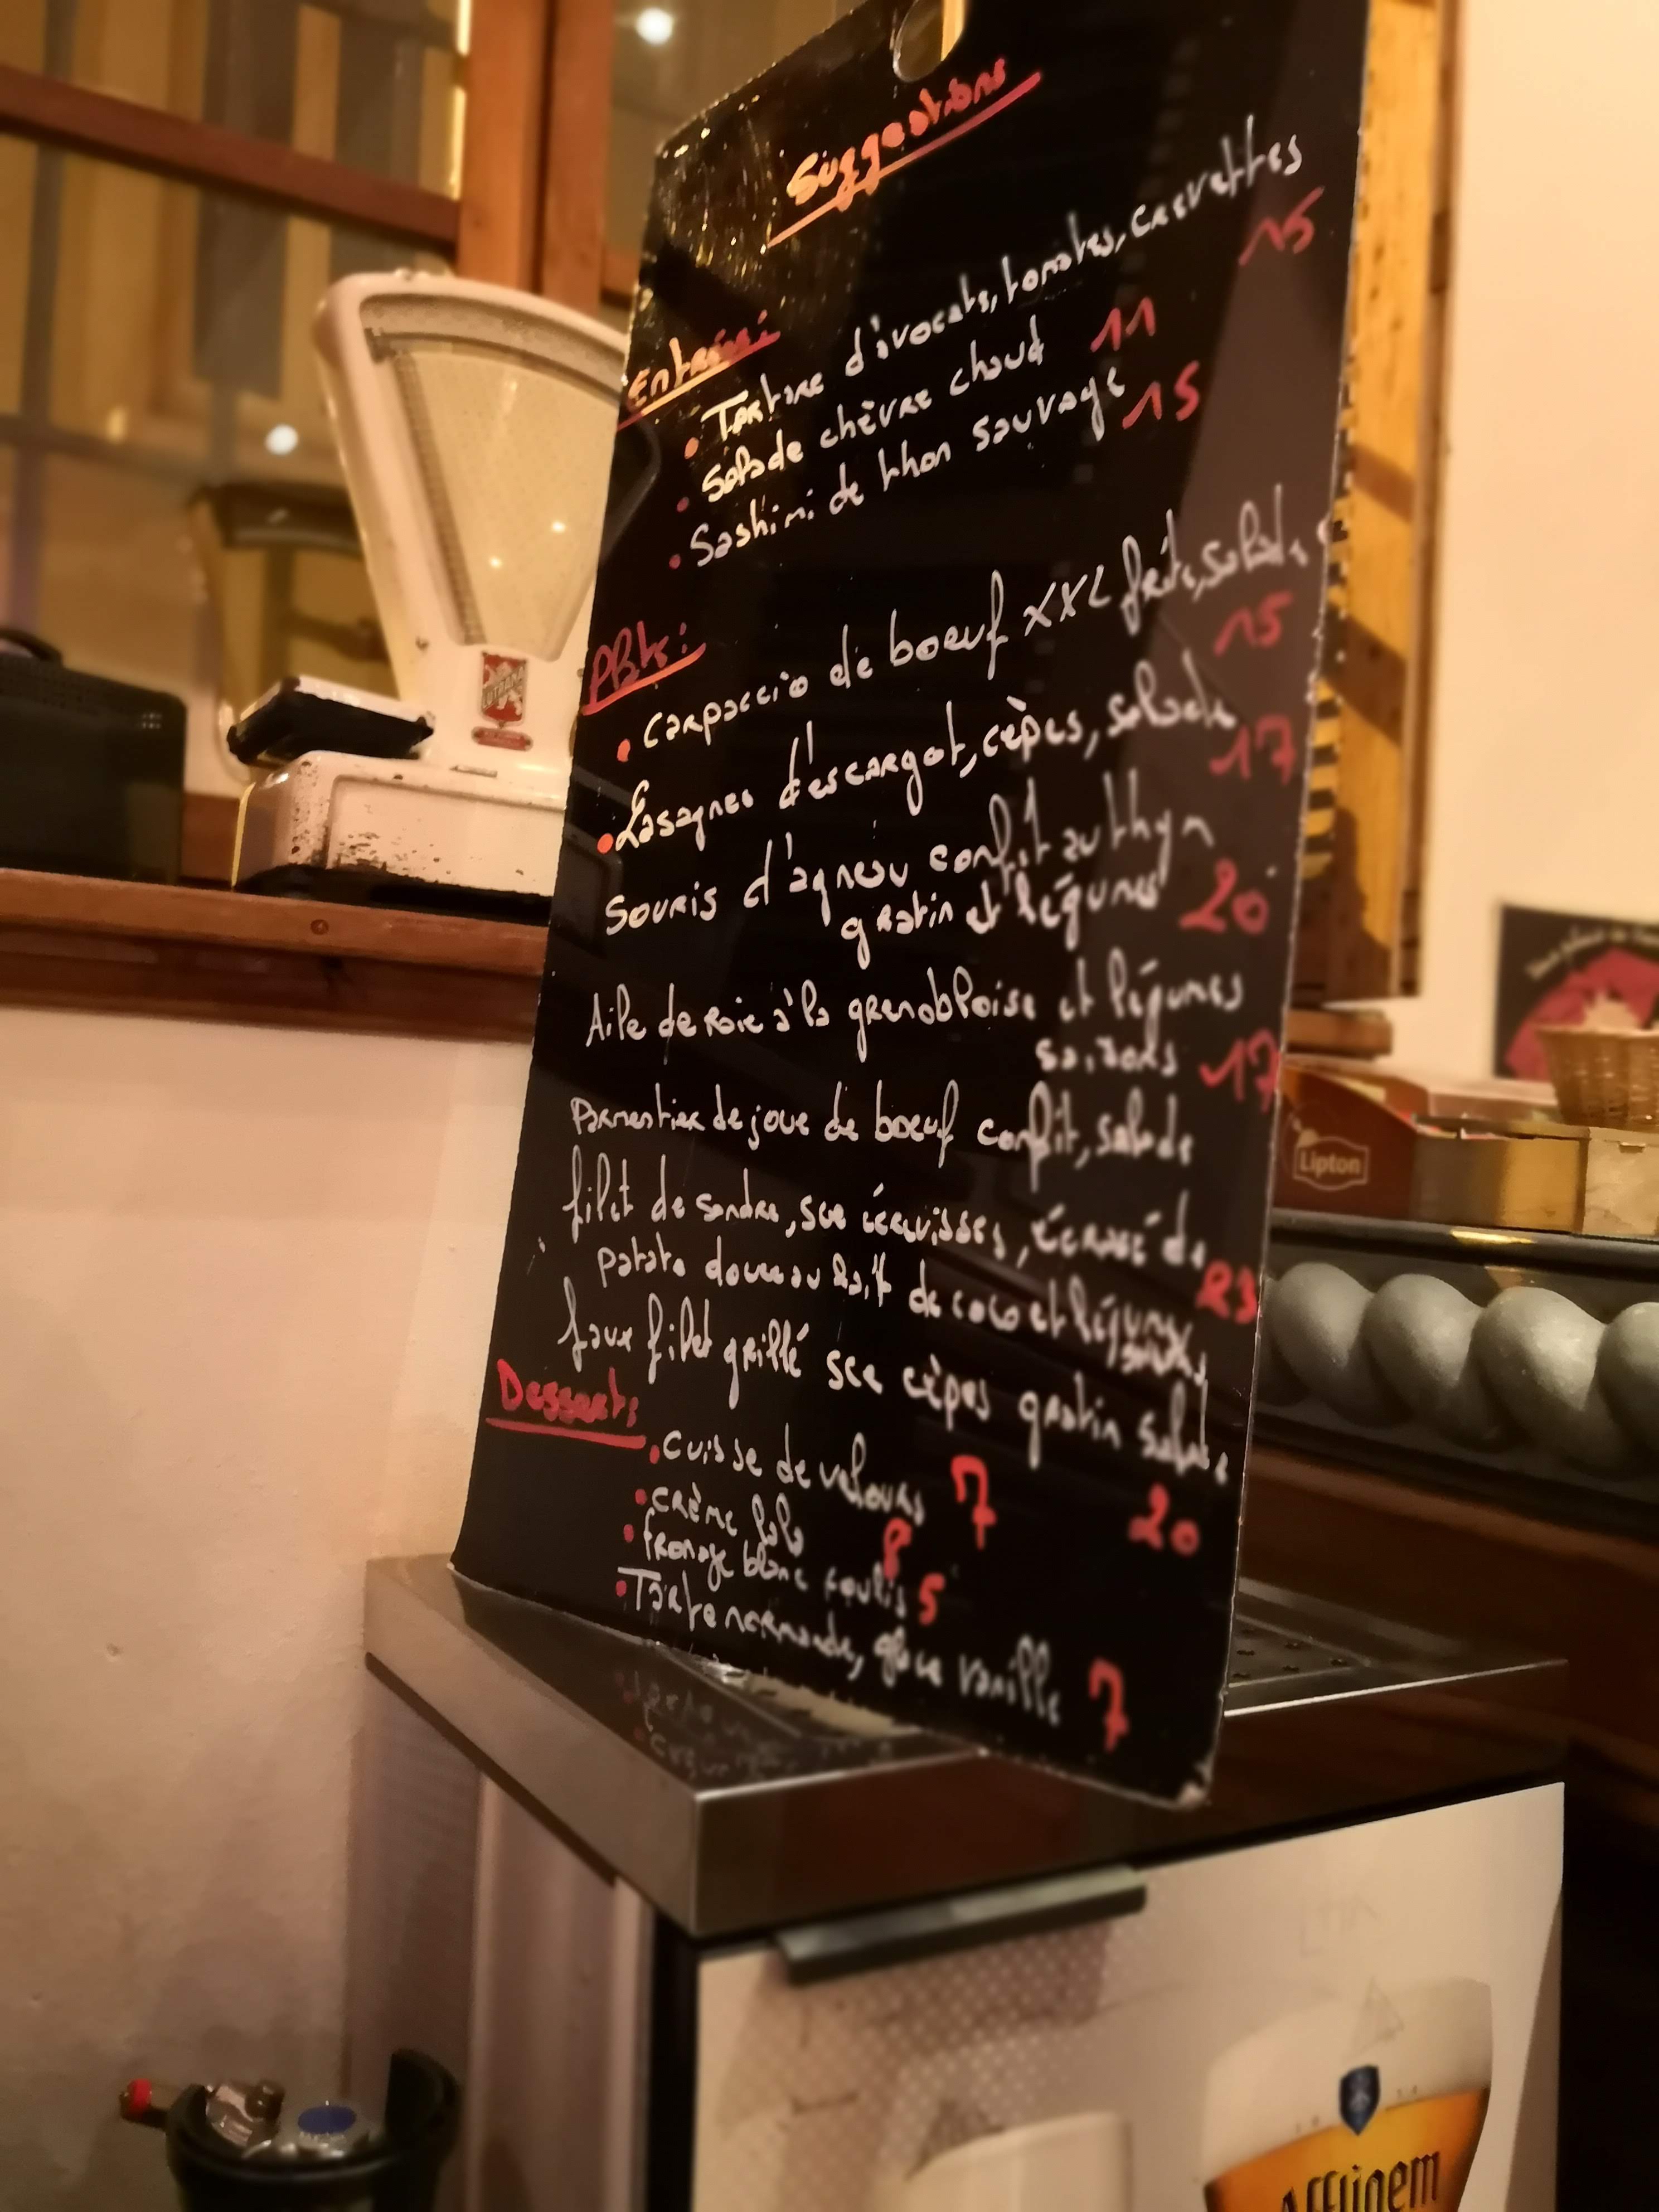 Suggestions
Entrées:
• Tartare d'avocats, tomates, crevettes
15
• Salade chèvre chaud 11
• Sashimi de thon sauvage 15
Plats:
• Carpaccio de boeuf XXL frites, salade
15
• Lasagnes d'escargot, cèpes, salade
17
Souris d'agneau confit au thym
gratin et légumes 20
Aile de raie à la grenobloise et légumes
saisons 17
Parmentier de joue de boeuf confit, salade
filet de sandre, sce écrevisses, écrasé de
patate douce au lait de coco et légumes 23
faux filet grillé sce cèpes gratin salade
20
Desserts
• Cuisse de velours 7
• Crème lolo 8
• fromage blanc coulis 5
• Tarte normande, glace vanille 7
Lipton
Affligem